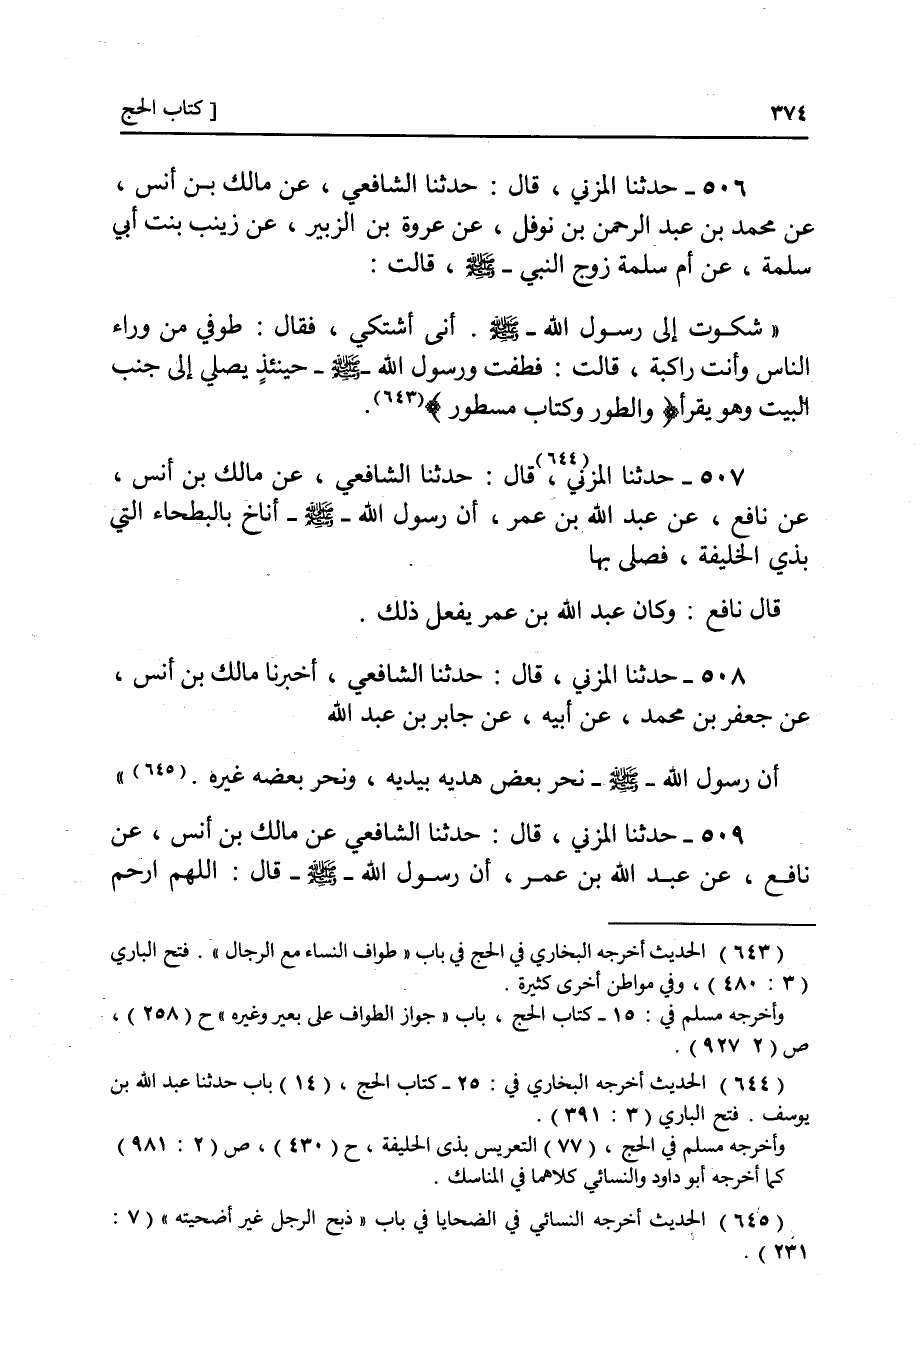 ٣٧٤
[ كتاب الحج
٥٠٦ ـ حدثنا المزني ، قال : حدثنا الشافعي ، عن مالك بـن أنس ،
عن محمد بن عبد الرحمن بن نوفل ، عن عروة بن الزبير ، عن زينب بنت أبي
سلمة ، عن أم سلمة زوج النبي ـ ﷺ ، قالت :
« شكـوت إلى رسـول الله ـ ﷺ . أنى أشتكي ، فقال : طوفي من وراء
الناس وأنت راكبة ، قالت : فطفت ورسول الله ـ ﷺ ـ حينئذٍ يصلي إلى جنب
البيت وهو يقرأ ﴿ والطور وكتاب مسطور ﴾(٦٤٣).
٥٠٧ ـ حدثنا المزني(٦٤٤) ، قال : حدثنا الشافعي ، عن مالك بن أنس ،
عن نافع ، عن عبد الله بن عمر ، أن رسول الله ـ ﷺ ـ أناخ بالبطحاء التي
بذي الخليفة ، فصلى بها
قال نافع : وكان عبد الله بن عمر يفعل ذلك .
٥٠٨ ـ حدثنا المزني ، قال : حدثنا الشافعي ، أخبرنا مالك بن أنس ،
عن جعفر بن محمد ، عن أبيه ، عن جابر بن عبد الله
أن رسول الله ـ ﷺ ـ نحر بعض هديه بيديه ، ونحر بعضه غيره .(٦٤٥) »
٥٠٩ ـ حدثنا المزني ، قال : حدثنا الشافعي عن مالك بن أنس ، عن
نافـع ، عن عبـد الله بن عمـر ، أن رسـول الله ـ ﷺ ـ قال : اللهم ارحم
( ٦٤٣ ) الحديث أخرجه البخاري في الحج في باب « طواف النساء مع الرجال » . فتح الباري
( ٣ : ٤٨٠ ) ، وفي مواطن أخرى كثيرة .
وأخرجه مسلم في : ١٥ ـ كتاب الحج ، باب « جواز الطواف على بعير وغيره » ح ( ٢٥٨ ) ،
ص ( ٢ ٩٢٧ ) .
( ٦٤٤ ) الحديث أخرجه البخاري في : ٢٥ ـ كتاب الحج ، ( ١٤ ) باب حدثنا عبد الله بن
يوسف . فتح الباري ( ٣ : ٣٩١ ) .
وأخرجه مسلم في الحج ، ( ٧٧ ) التعريس بذى الحليفة ، ح ( ٤٣٠ ) ، ص ( ٢ : ٩٨١ )
كما أخرجه أبو داود والنسائي كلاهما في المناسك .
( ٦٤٥ ) الحديث أخرجه النسائي في الضحايا في باب « ذبح الرجل غير أضحيته » ( ٧ :
٢٣١ ) .